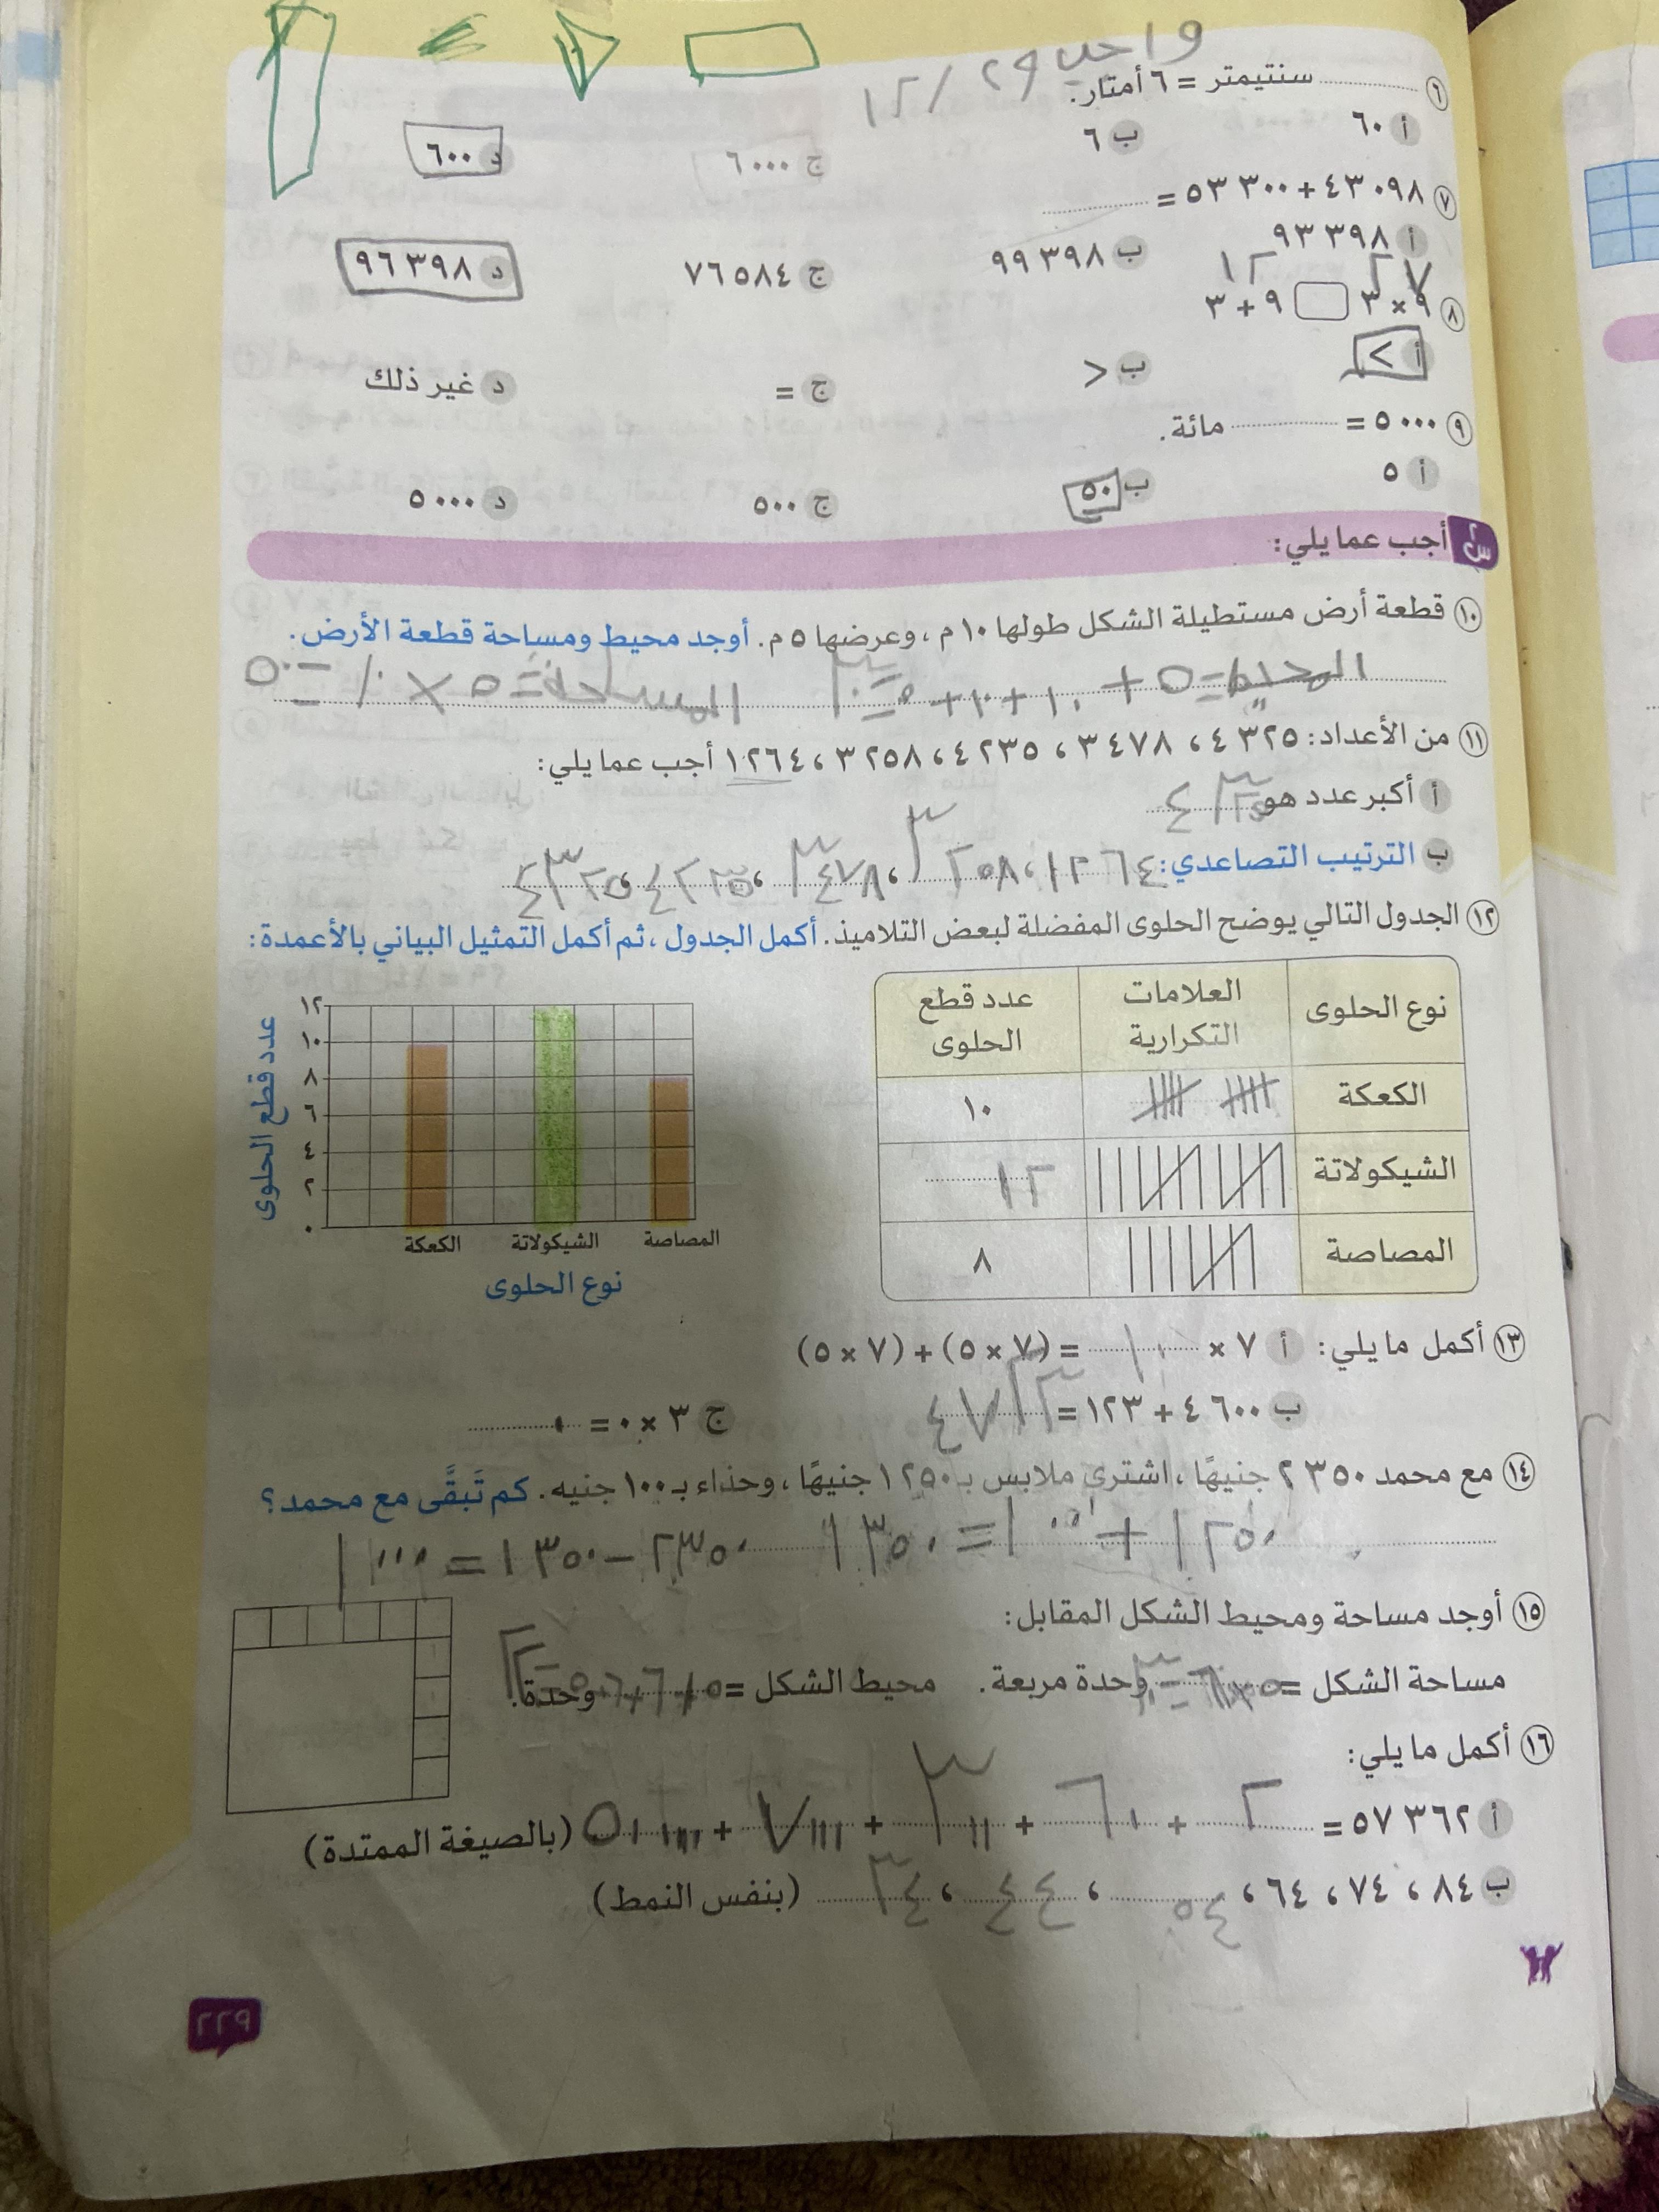 واجب ٢٩ / ١٢
٦ ............ سنتيمتر = ٦ أمتار.
أ ٦٠ ب ٦ ج ٦٠٠٠ د ٦٠٠
٧ ٤٣٠٩٨ + ٥٣٣٠٠ = ............
أ ٩٣٣٩٨ ب ٩٩٣٩٨ ج ٧٦٥٨٤ د ٩٦٣٩٨
٢٧ ١٢
٨ ٩ × ٣ ☐ ٩ + ٣
أ > ب < ج = د غير ذلك
٩ ٥٠٠٠ = ............ مائة.
أ ٥ ب ٥٠ ج ٥٠٠ د ٥٠٠٠
س٢ أجب عما يلي:
١٠ قطعة أرض مستطيلة الشكل طولها ١٠ م، وعرضها ٥ م. أوجد محيط ومساحة قطعة الأرض.
المحيط = ٥ + ١٠ + ١٠ + ٥ = ٣٠ المساحة = ٥ × ١٠ = ٥٠
١١ من الأعداد: ٤٣٢٥ ، ٣٤٧٨ ، ٤٢٣٥ ، ٣٢٥٨ ، ١٢٦٤ أجب عما يلي:
أ أكبر عدد هو ٤٣٢٥
ب الترتيب التصاعدي: ١٢٦٤ ، ٣٢٥٨ ، ٣٤٧٨ ، ٤٢٣٥ ، ٤٣٢٥
١٢ الجدول التالي يوضح الحلوى المفضلة لبعض التلاميذ. أكمل الجدول، ثم أكمل التمثيل البياني بالأعمدة:
نوع الحلوى العلامات التكرارية عدد قطع الحلوى
الكعكة ١٠
الشيكولاتة ١٢
المصاصة ٨
عدد قطع الحلوى
١٢
١٠
٨
٦
٤
٢
٠
الكعكة الشيكولاتة المصاصة
نوع الحلوى
١٣ أكمل ما يلي: أ ٧ × ١٠ = (٧ × ٥) + (٧ × ٥)
ب ٤٦٠٠ + ١٢٣ = ٤٧٢٣ ج ٣ × ٠ = ٠
١٤ مع محمد ٢٣٥٠ جنيهًا، اشترى ملابس بـ ١٢٥٠ جنيهًا، وحذاء بـ ١٠٠ جنيه. كم تَبقَّى مع محمد؟
١٢٥٠ + ١٠٠ = ١٣٥٠ ٢٣٥٠ - ١٣٥٠ = ١٠٠٠
١٥ أوجد مساحة ومحيط الشكل المقابل:
مساحة الشكل = ٥ × ٦ = ٣٠ وحدة مربعة. محيط الشكل = ٥ + ٦ + ٦ + ٥ = ٢٢ وحدة.
١٦ أكمل ما يلي:
أ ٥٧٣٦٢ = ٢ + ٦٠ + ٣٠٠ + ٧٠٠٠ + ٥٠٠٠٠ (بالصيغة الممتدة)
ب ٨٤ ، ٧٤ ، ٦٤ ، ٥٤ ، ٤٤ ، ٣٤ (بنفس النمط)
٢٢٩